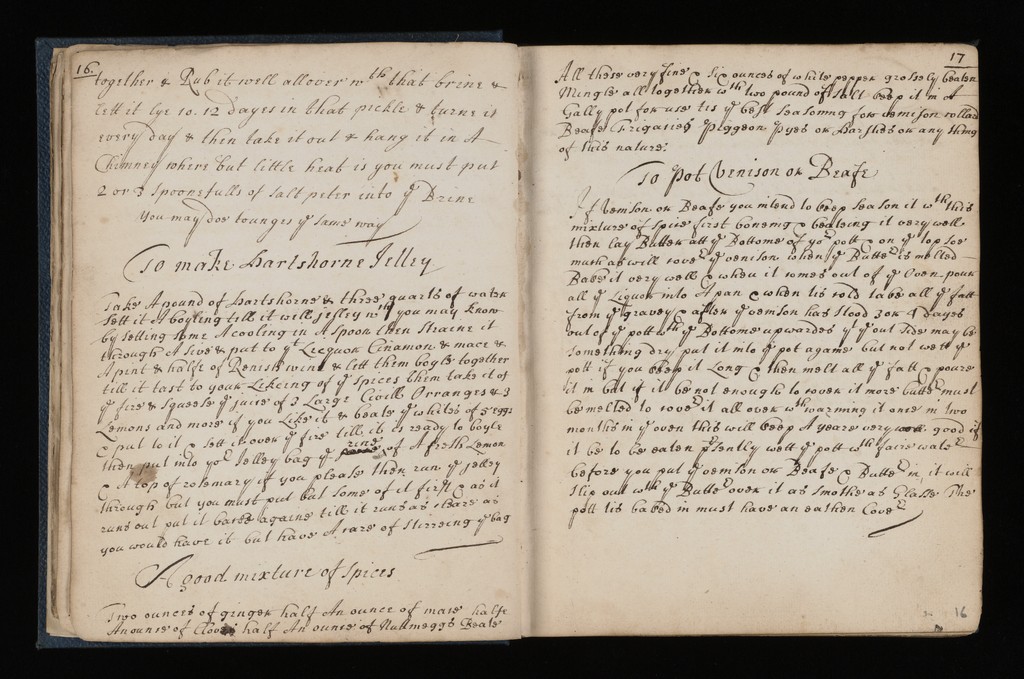 16.
together & Rub it well all over wth that brine &
lett it lye 10. 12 dayes in that pickle & turne it
every day & then take it out & hang it in A
Chimney where but little heat is you must put
2 or 3 spoonefulls of salt peter into ye Brine
You may doe tounges ye same way
To make hartshorne Jelley
Take A pound of hartshorne & three quarts of water
sett it A boyling till it will jelley wch you may know
by setting some A cooling in A spoon then straene it
through A sive & put to yt Leequor Cinamon & mace &
A pint & halfe of Renish wine & lett them boyle together
till it tast to your Likeing of ye spices then take it of
ye fire & squeese ye juice of 3 Large Civill Orranges & 3
Lemons and more if you Like it & beate ye whites of 5 eggs
& put to it & sett it over ye fire till it is ready to boyle
then put into yor Jelley bag ye rine of A fresh Lemon
& A top of rosemary if you please then run ye jelley
through but you must put but some of it first & as it
runs out put it backe againe till it runs as cleare as
you would have it but have A care of stirreing ye bag
A good mixture of spices
Two ounces of ginger half An ounce of mace halfe
An ounce of Cloves half An ounce of Nuttmeggs Beate
17
All these very fine & six ounces of white pepper grossely beaten
Mingle all together wth two pound of salt keep it in A
Gally pot for use tis ye best seasoning for venison rolled
Beafe Frigacies Piggeon Pyes or Parsties or any thing
of this nature:
To Pot Venison or Beafe
If venison or Beafe you intend to keep season it wth this
mixture of spice first boneing & beateing it very well
then lay Butter att ye Bottome of yor pott & on ye top soe
much as will cover ye venison when ye Butter is melted
Bake it very well & when it comes out of ye Oven pour
all ye Liquor into A pan & when tis cold take all ye fatt
from ye gravey & after ye venison has stood 3 or 4 dayes
out of ye pott wth ye Bottome upwardes yt ye out side may be
something dry put it into ye pot againe but not wett ye
pott if you keep it Long & then melt all ye fatt & poure
it in but if it be not enough to cover it more butter must
be melted to cover it all over wth warming it once in two
months in ye oven this will keep A yeare very good if
it be to be eaten presently wett ye pott wth faire water
before you put ye venison or Beafe & Butter in it will
slip out wth ye Butter over it as smothe as Glasse The
pott tis baked in must have an earthen Cover
16